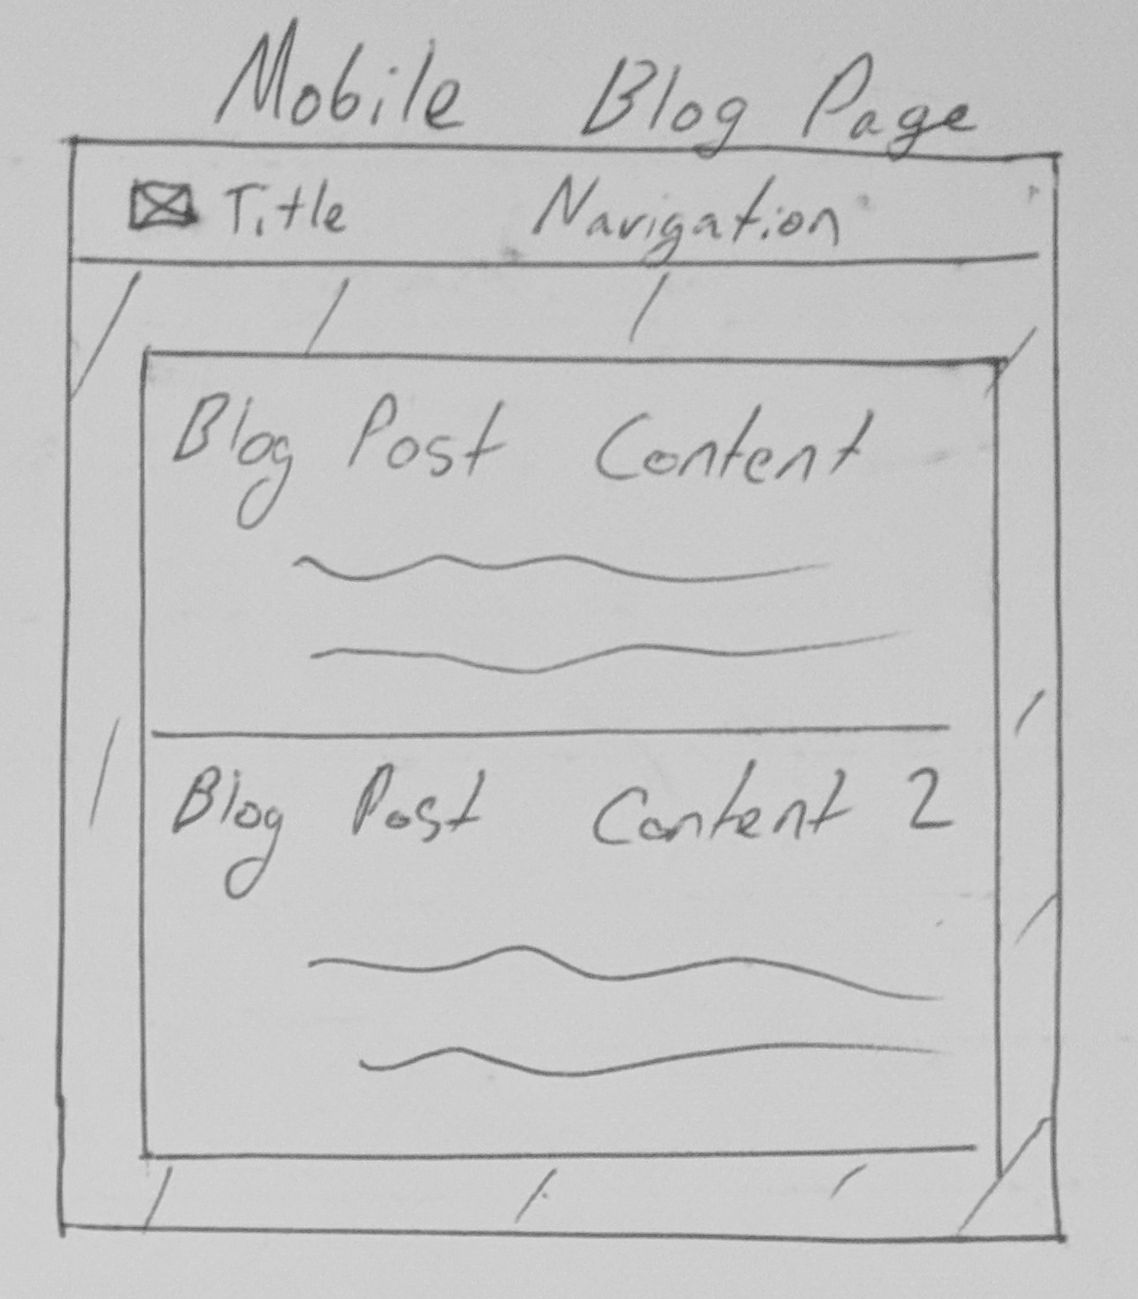 Mobile Blog Page
Title Navigation
Blog Post Content
Blog Post Content 2